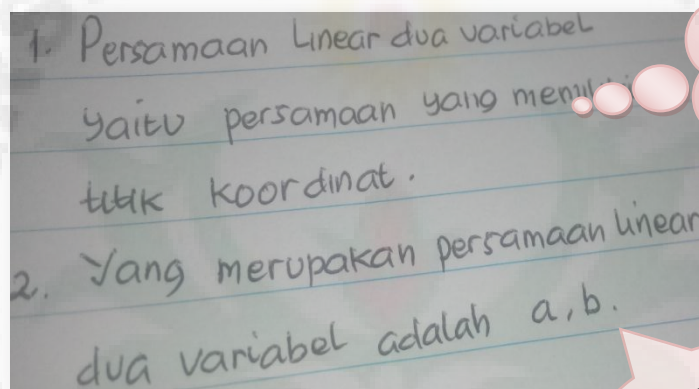 1. Persamaan Linear dua variabel
yaitu persamaan yang
titik koordinat.
2. Yang merupakan persamaan linear
dua variabel adalah a, b.